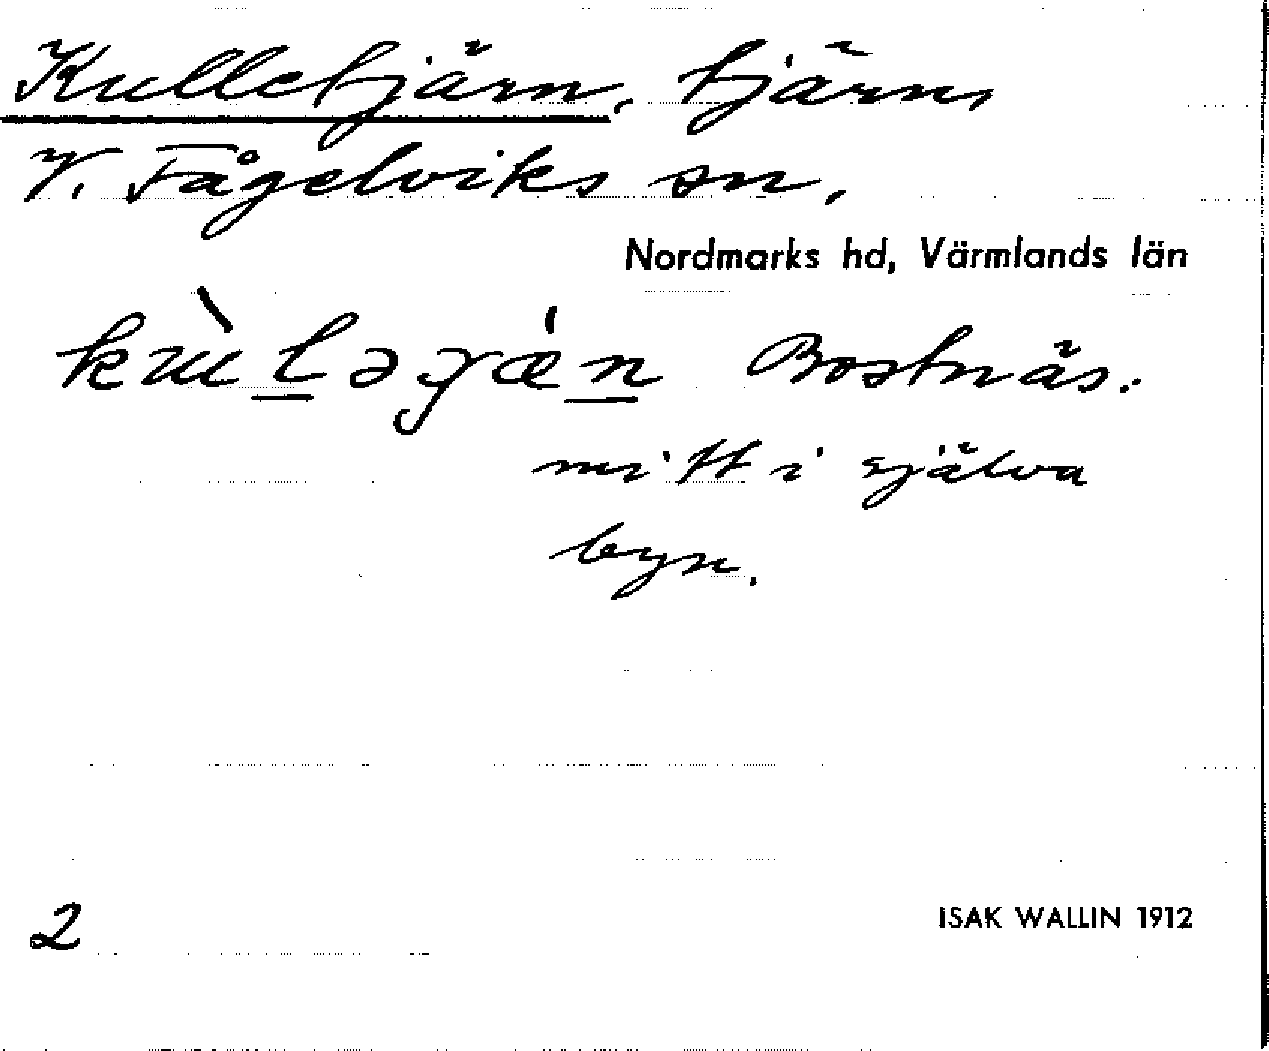 Kulletjärn, tjärn,
V. Fågelviks sn.
Nordmarks hd, Värmlands län
Bostnäs.
mitt i själva
byn.
2
ISAK WALLIN 1912